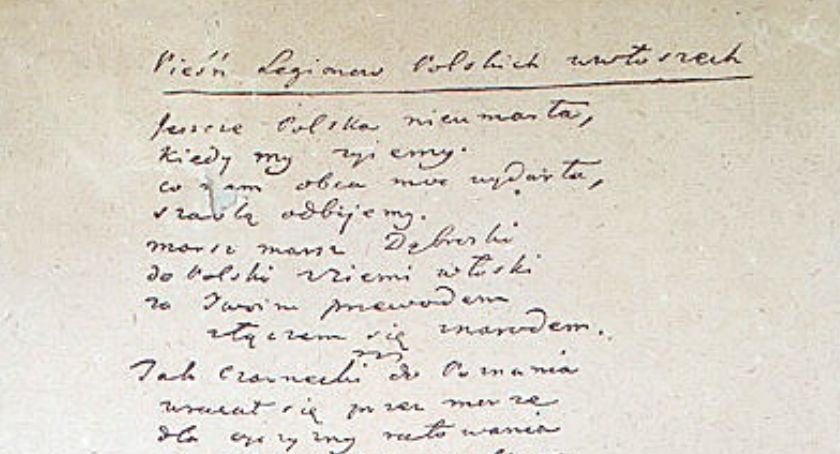 Pieśń Legionow Polskich wewłoszech
Jeszcze Polska nieumarła,
kiedy my żyiemy.
co nam obca moc wydarła,
szablą odbijemy.
marsz marsz Dąbroski
do Polski zziemi włoski
za Twoim przewodem
złączem się znarodem.
Jak Czarnecki do Poznania
wracał się przez morze
dla ojczyzny ratowania